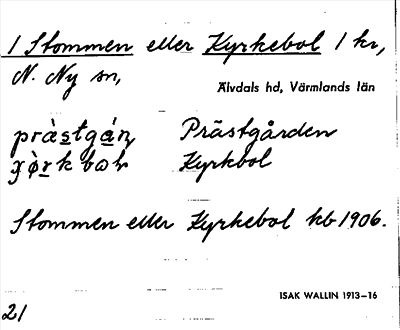 1 Stommen eller Kyrkebol 1 kr,
N. Ny sn,
Älvdals hd, Värmlands län
Prästgården
Kyrkbol
Stommen eller Kyrkebol kb 1906.
ISAK WALLIN 1913–16
21